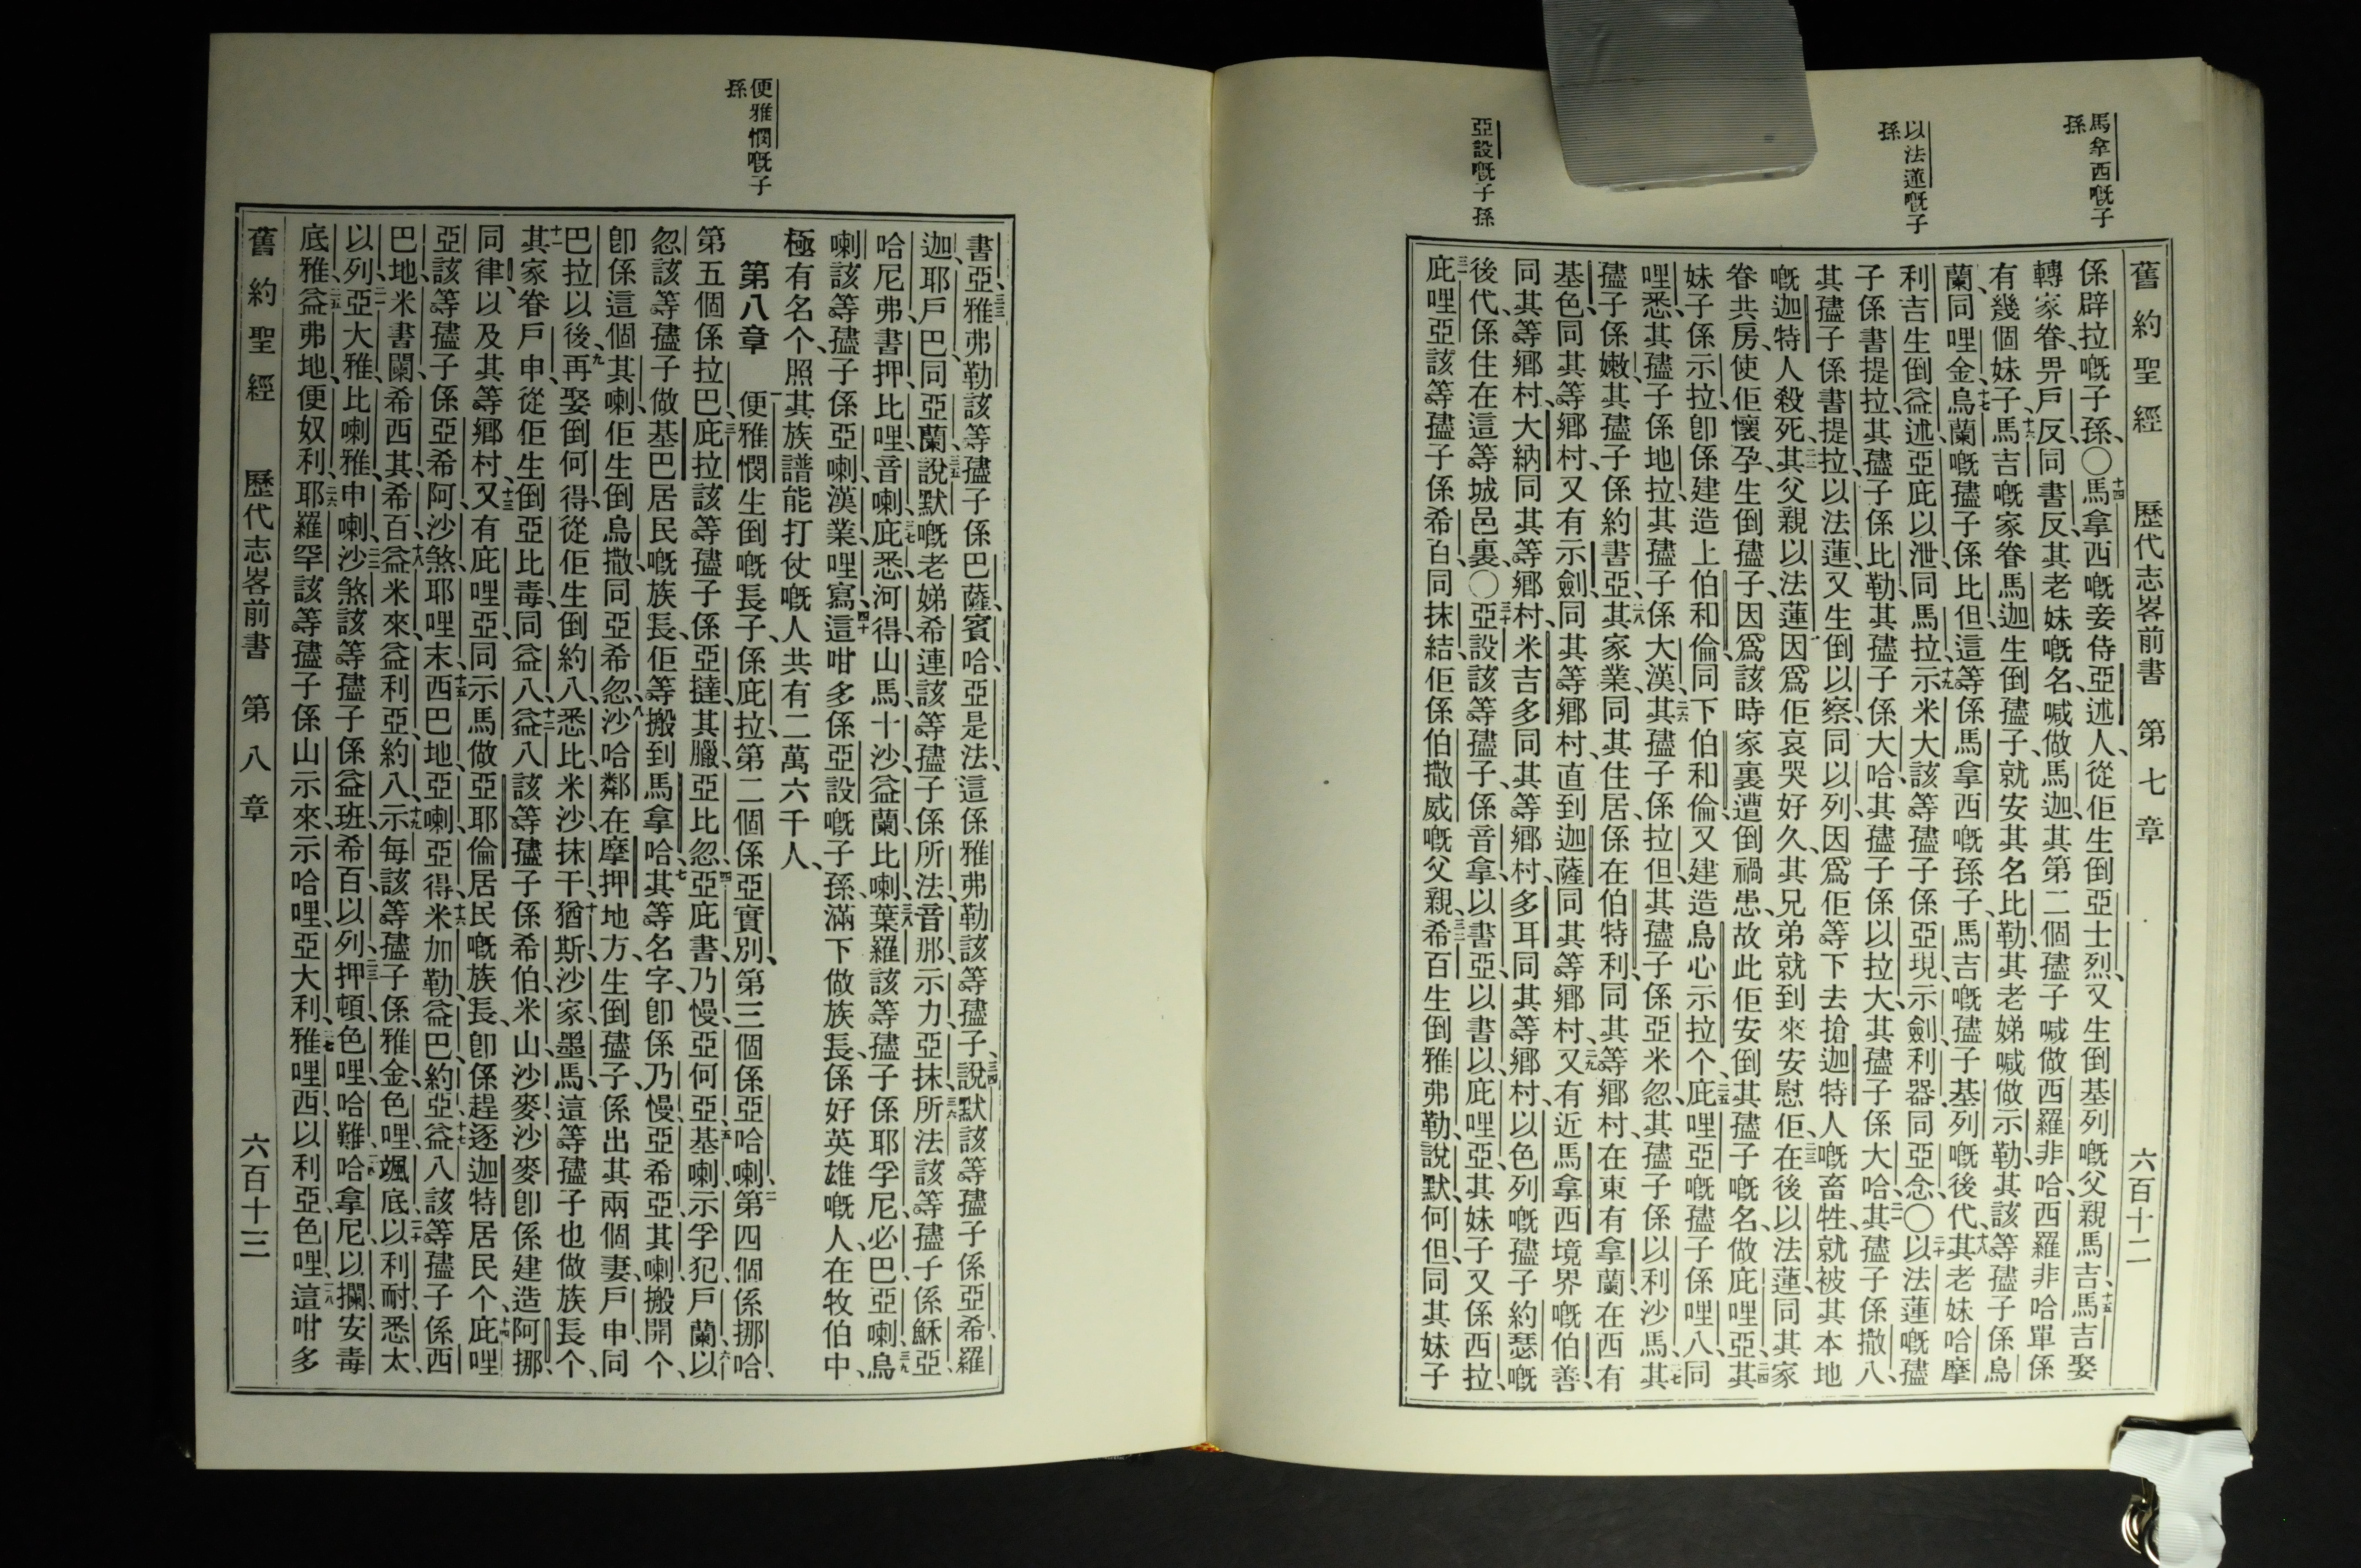 馬拿西嘅子
孫
以法蓮嘅子
孫
亞設嘅子孫
舊約聖經 歷代志畧前書 第七章 六百十二
係辟拉嘅子孫、〇十四馬拿西嘅妾侍亞述人、從佢生倒亞士烈、又生倒基列嘅父親馬吉、十五馬吉娶
轉家眷畀戶反、同書反、其老妹嘅名、喊做馬迦、其第二個孻子喊做西羅非哈、西羅非哈單係
有幾個妹子、十六馬吉嘅家眷馬迦、生倒孻子、就安其名比勒、其老娣喊做示勒、其該等孻子係烏
蘭、同哩金、十七烏蘭嘅孻子係比但、這等係馬拿西嘅孫子、馬吉嘅孻子基列嘅後代、十八其老妹哈摩
利吉生倒益述、亞庇以泄、同馬拉、十九示米大該等孻子係亞現、示劍、利器、同亞念、〇二十以法蓮嘅孻
子係書提拉、其孻子係比勒、其孻子係大哈、其孻子係以拉大、其孻子係大哈、二一其孻子係撒八、
其孻子係書提拉、以法蓮又生倒以察、同以列、因爲佢等下去搶迦特人嘅畜牲、就被其本地
嘅迦特人殺死、二二其父親以法蓮因爲佢哀哭好久、其兄弟就到來安慰佢、二三在後以法蓮、同其家
眷共房、使佢懷孕、生倒孻子、因爲該時家裏遭倒禍患、故此佢安倒其孻子嘅名、做庇哩亞、二四其
妹子係示拉、卽係建造上伯和倫、同下伯和倫、又建造烏心示拉个、二五庇哩亞嘅孻子係哩八、同
哩悉、其孻子係地拉、其孻子係大漢、二六其孻子係拉但、其孻子係亞米忽、其孻子係以利沙馬、二七其
孻子係嫩、其孻子係約書亞、二八其家業同其住居、係在伯特利、同其等鄉村、在東有拿蘭、在西有
基色、同其等鄉村、又有示劍、同其等鄉村、直到迦薩、同其等鄉村、二九又有近馬拿西境界嘅伯善、
同其等鄉村、大納同其等鄉村、米吉多同其等鄉村、多耳同其等鄉村、以色列嘅孻子約瑟嘅
後代、係住在這等城邑裏、〇三十亞設該等孻子、係音拿、以書亞、以書以、庇哩亞、其妹子又係西拉、
三一庇哩亞該等孻子係希百、同抹結、佢係伯撒威嘅父親、三二希百生倒雅弗勒、說默、何但、同其妹子
便雅憫嘅子
孫
書亞、三三雅弗勒該等孻子係巴薩、賓哈、亞是法、這係雅弗勒該等孻子、三四說默該等孻子係亞希、羅
迦、耶戶巴、同亞蘭、三五說默嘅老娣希連該等孻子係所法、音那、示力、亞抹、三六所法該等孻子係穌亞、
哈尼弗、書押、比哩、音喇、三七庇悉、河得、山馬、十沙、益蘭、比喇、三八葉羅該等孻子係耶孚尼、必巴、亞喇、三九烏
喇該等孻子係亞喇、漢業、哩寫、四十這咁多係亞設嘅子孫、滿下做族長、係好英雄嘅人、在牧伯中、
極有名个、照其族譜能打仗嘅人共有二萬六千人、
第八章 一便雅憫生倒嘅長子、係庇拉、第二個係亞實別、第三個係亞哈喇、二第四個係挪哈、
第五個係拉巴、三庇拉該等孻子係亞撻、其臘、亞比忽、四亞庇書、乃慢、亞何亞、五基喇、示孚犯、戶蘭、六以
忽該等孻子做基巴居民嘅族長、佢等搬到馬拿哈、七其等名字、卽係乃慢、亞希亞、其喇、搬開个、
卽係這個其喇、佢生倒烏撒、同亞希忽、八沙哈鄰在摩押地方、生倒孻子、係出其兩個妻、戶申、同
巴拉以後、九再娶倒何得、從佢生倒約八、悉比、米沙、抹干、十猶斯、沙家、墨馬、這等孻子也做族長个、
十一其家眷戶申、從佢生倒亞比毒、同益八、十二益八該等孻子係希伯、米山、沙麥、沙麥卽係建造阿挪、
同律、以及其等鄉村、十三又有庇哩亞、同示馬、做亞耶倫居民嘅族長、卽係趕逐迦特居民个、十四庇哩
亞該等孻子係亞希阿、沙煞、耶哩末、十五西巴地、亞喇、亞得、十六米加勒、益巴、約亞、十七益八該等孻子係西
巴地、米書闌、希西其、希百、十八益米來、益利亞、約八、十九示每該等孻子係雅金、色哩、颯底、二十以利耐、悉太、
以列、二一亞大雅、比喇雅、申喇、二二沙煞該等孻子係益班、希百、以列、二三押頓、色哩、哈難、二四哈拿尼、以攔、安毒
底雅、二五益弗地、便奴利、二六耶羅罕該等孻子係山示來、示哈哩、亞大利、二七雅哩西、以利亞、色哩、二八這咁多
舊約聖經 歷代志畧前書 第八章 六百十三